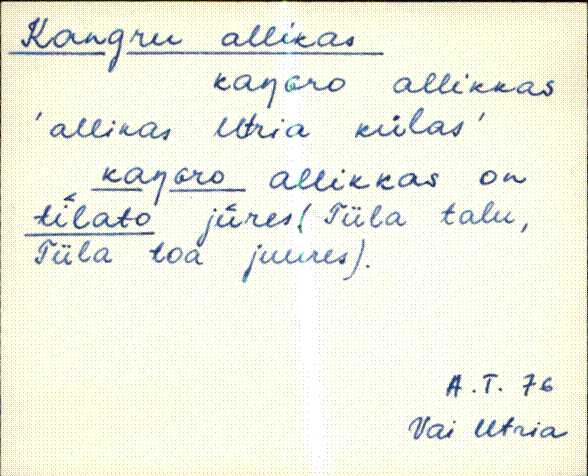 Kangru allikas
kaŋGro allikkas
'allikas Utria külas'
kaŋGro allikkas on
tilato jüres (Tüla talu,
Tüla toa juures).
A.T. 76
Vai Utria